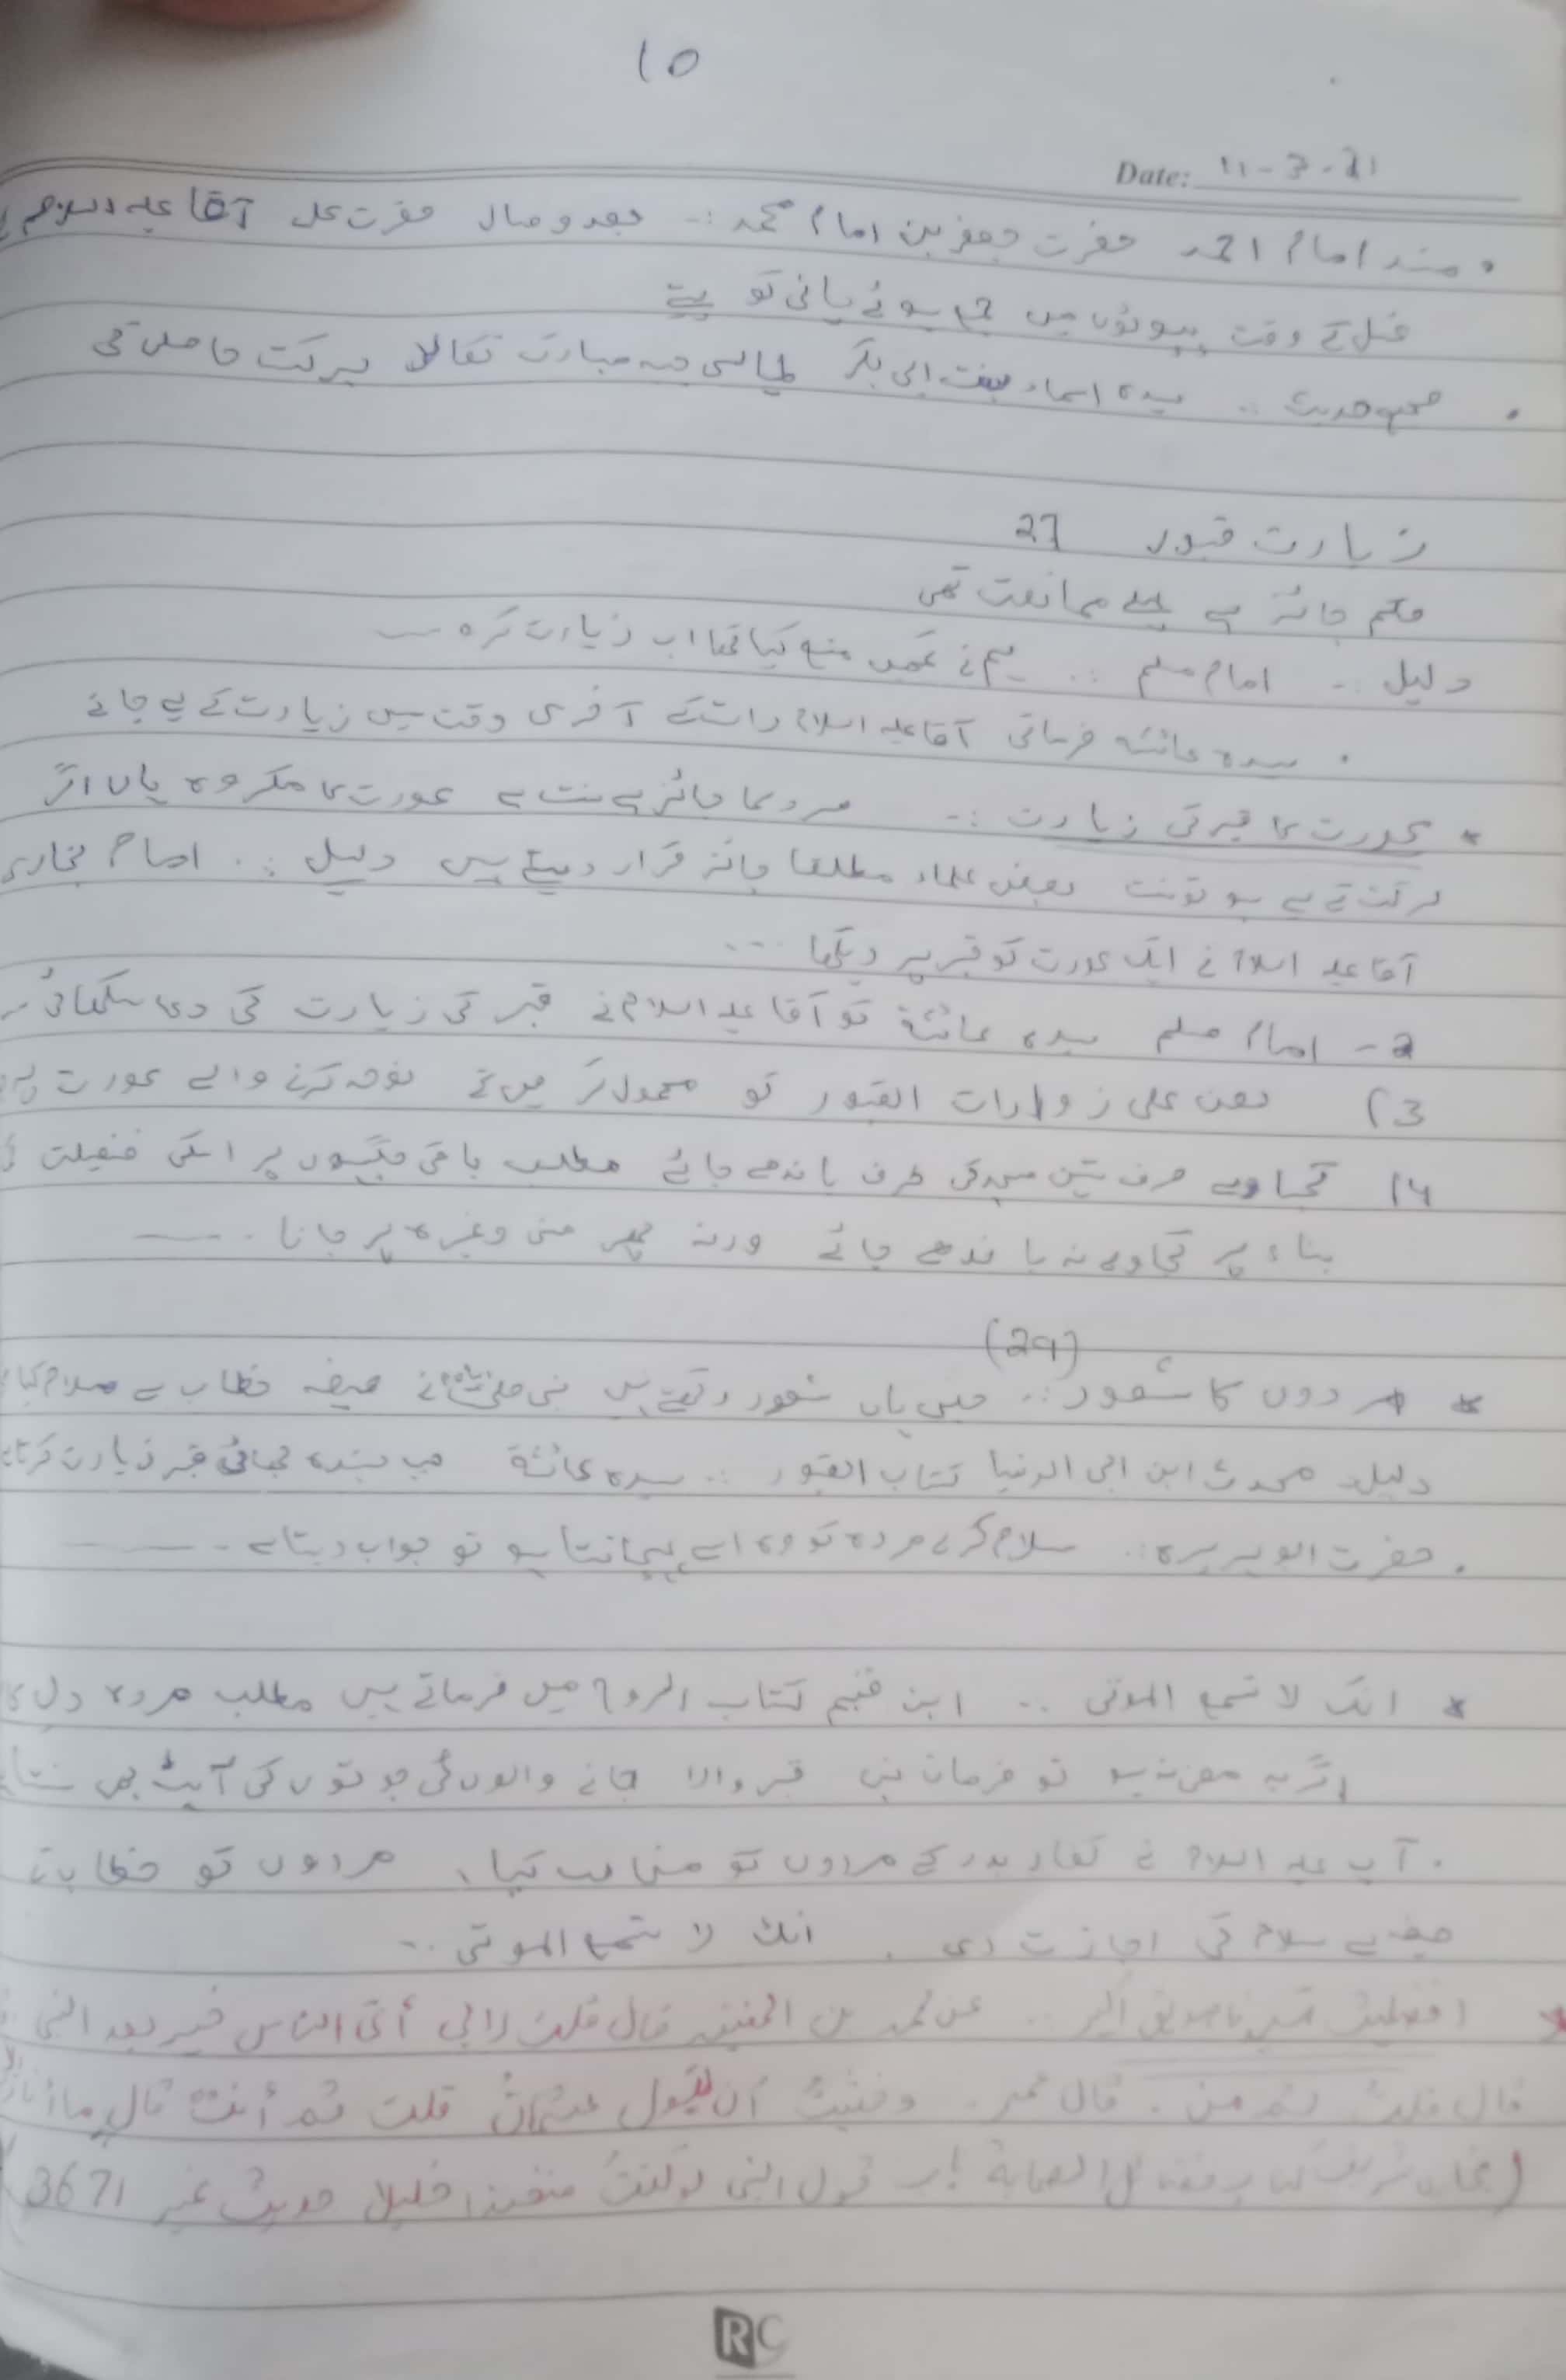 10
Date: 11-3-21
مسند امام احمد حضرت جعفر بن امام محمد :- بعد وصال حضرت علی آقا علیہ السلام
غسل کے وقت پپوٹوں میں جمع ہوئے پانی کو پیتے
صحیح حدیث :. سیدہ اسماء بنت ابی بکر طیالسی جبہ مبارک نکالا برکت حاصل کی
زیارت قبور 27
حکم جائز ہے پہلے ممانعت تھی
دلیل :. امام مسلم :. ہم نے تمہیں منع کیا تھا اب زیارت کرو
. سیدہ عائشہ فرماتی آقا علیہ السلام رات کے آخری وقت میں زیارت کے لیے جاتے
* عورت کا قبر کی زیارت :- مرد کا جائز ہے سنت ہے عورت کا مکروہ ہاں اگر
برکت کے لیے ہو تو سنت بعض علماء مطلقا جائز قرار دیتے ہیں دلیل :. امام بخاری
آقا علیہ السلام نے ایک عورت کو قبر پر دیکھا ...
2- امام مسلم سیدہ عائشۃ کو آقا علیہ السلام نے قبر کی زیارت کی دعا سکھائی
3) لعن علی زوارات القبور کو محمول کریں گے نوحہ کرنے والے عورت پر
4) کجاوے صرف تین مسجد کی طرف باندھے جائے مطلب باقی جگہوں پر اسکی فضیلت
بناء پر کجاوے نہ باندھے جائے ورنہ پھر منی وغیرہ پر جانا
(29)
* مردوں کا شعور :. جی ہاں شعور رکھتے ہیں نبی صلی اللہ نے صیغہ خطاب سے سلام کیا
دلیل محدث ابن ابی الدنیا کتاب القبور :. سیدہ عائشۃ جب بندہ بھائی قبر زیارت کرتا
. حضرت ابو ہریرہ :. سلام کرے مردہ کو وہ اسے پہچانتا ہو تو جواب دیتا ہے
* انک لا تسمع الموتی :. ابن قیم کتاب الروح میں فرماتے ہیں مطلب مردہ دل
اگر یہ معنی نہ ہو تو فرمان نبی قبر والا جانے والوں کی جوتوں کی آہٹ بھی سنتا
. آپ علیہ السلام نے کفار بدر کے مردوں کو مخاطب کیا، مردوں کو خطاب کے
صیغے سلام کی اجازت دی . انک لا تسمع الموتی ..
* افضلیت سیدنا صدیق اکبر :. عن محمد بن الحنفیہ قال قلت لابی أی الناس خیر بعد النبی
قال قلت ثم من . قال عمر . وخشیت أن یقول عثمان قلت ثم أنت قال ما أنا
(بخاری شریف کتاب فضائل الصحابۃ باب قول النبی لو کنت متخذا خلیلا حدیث نمبر 3671)
RC